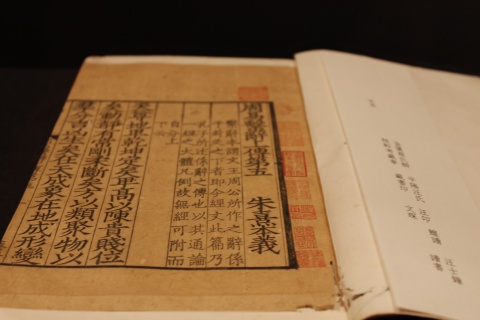 周易繫辭上傳第五
朱熹本義
繫辭本謂文王周公所作之辭係
于卦爻之下者即今經文此篇乃
孔子所述繫辭之傳也以其通論
一經之大體凡例故無經可附而
自分上
下云
天尊地卑乾坤定矣卑高以陳貴賤位
矣動靜有常剛柔斷矣方以類聚物以
羣分吉凶生矣在天成象在地成形變
平陽汪氏 汪印 汪士鐘 讀書